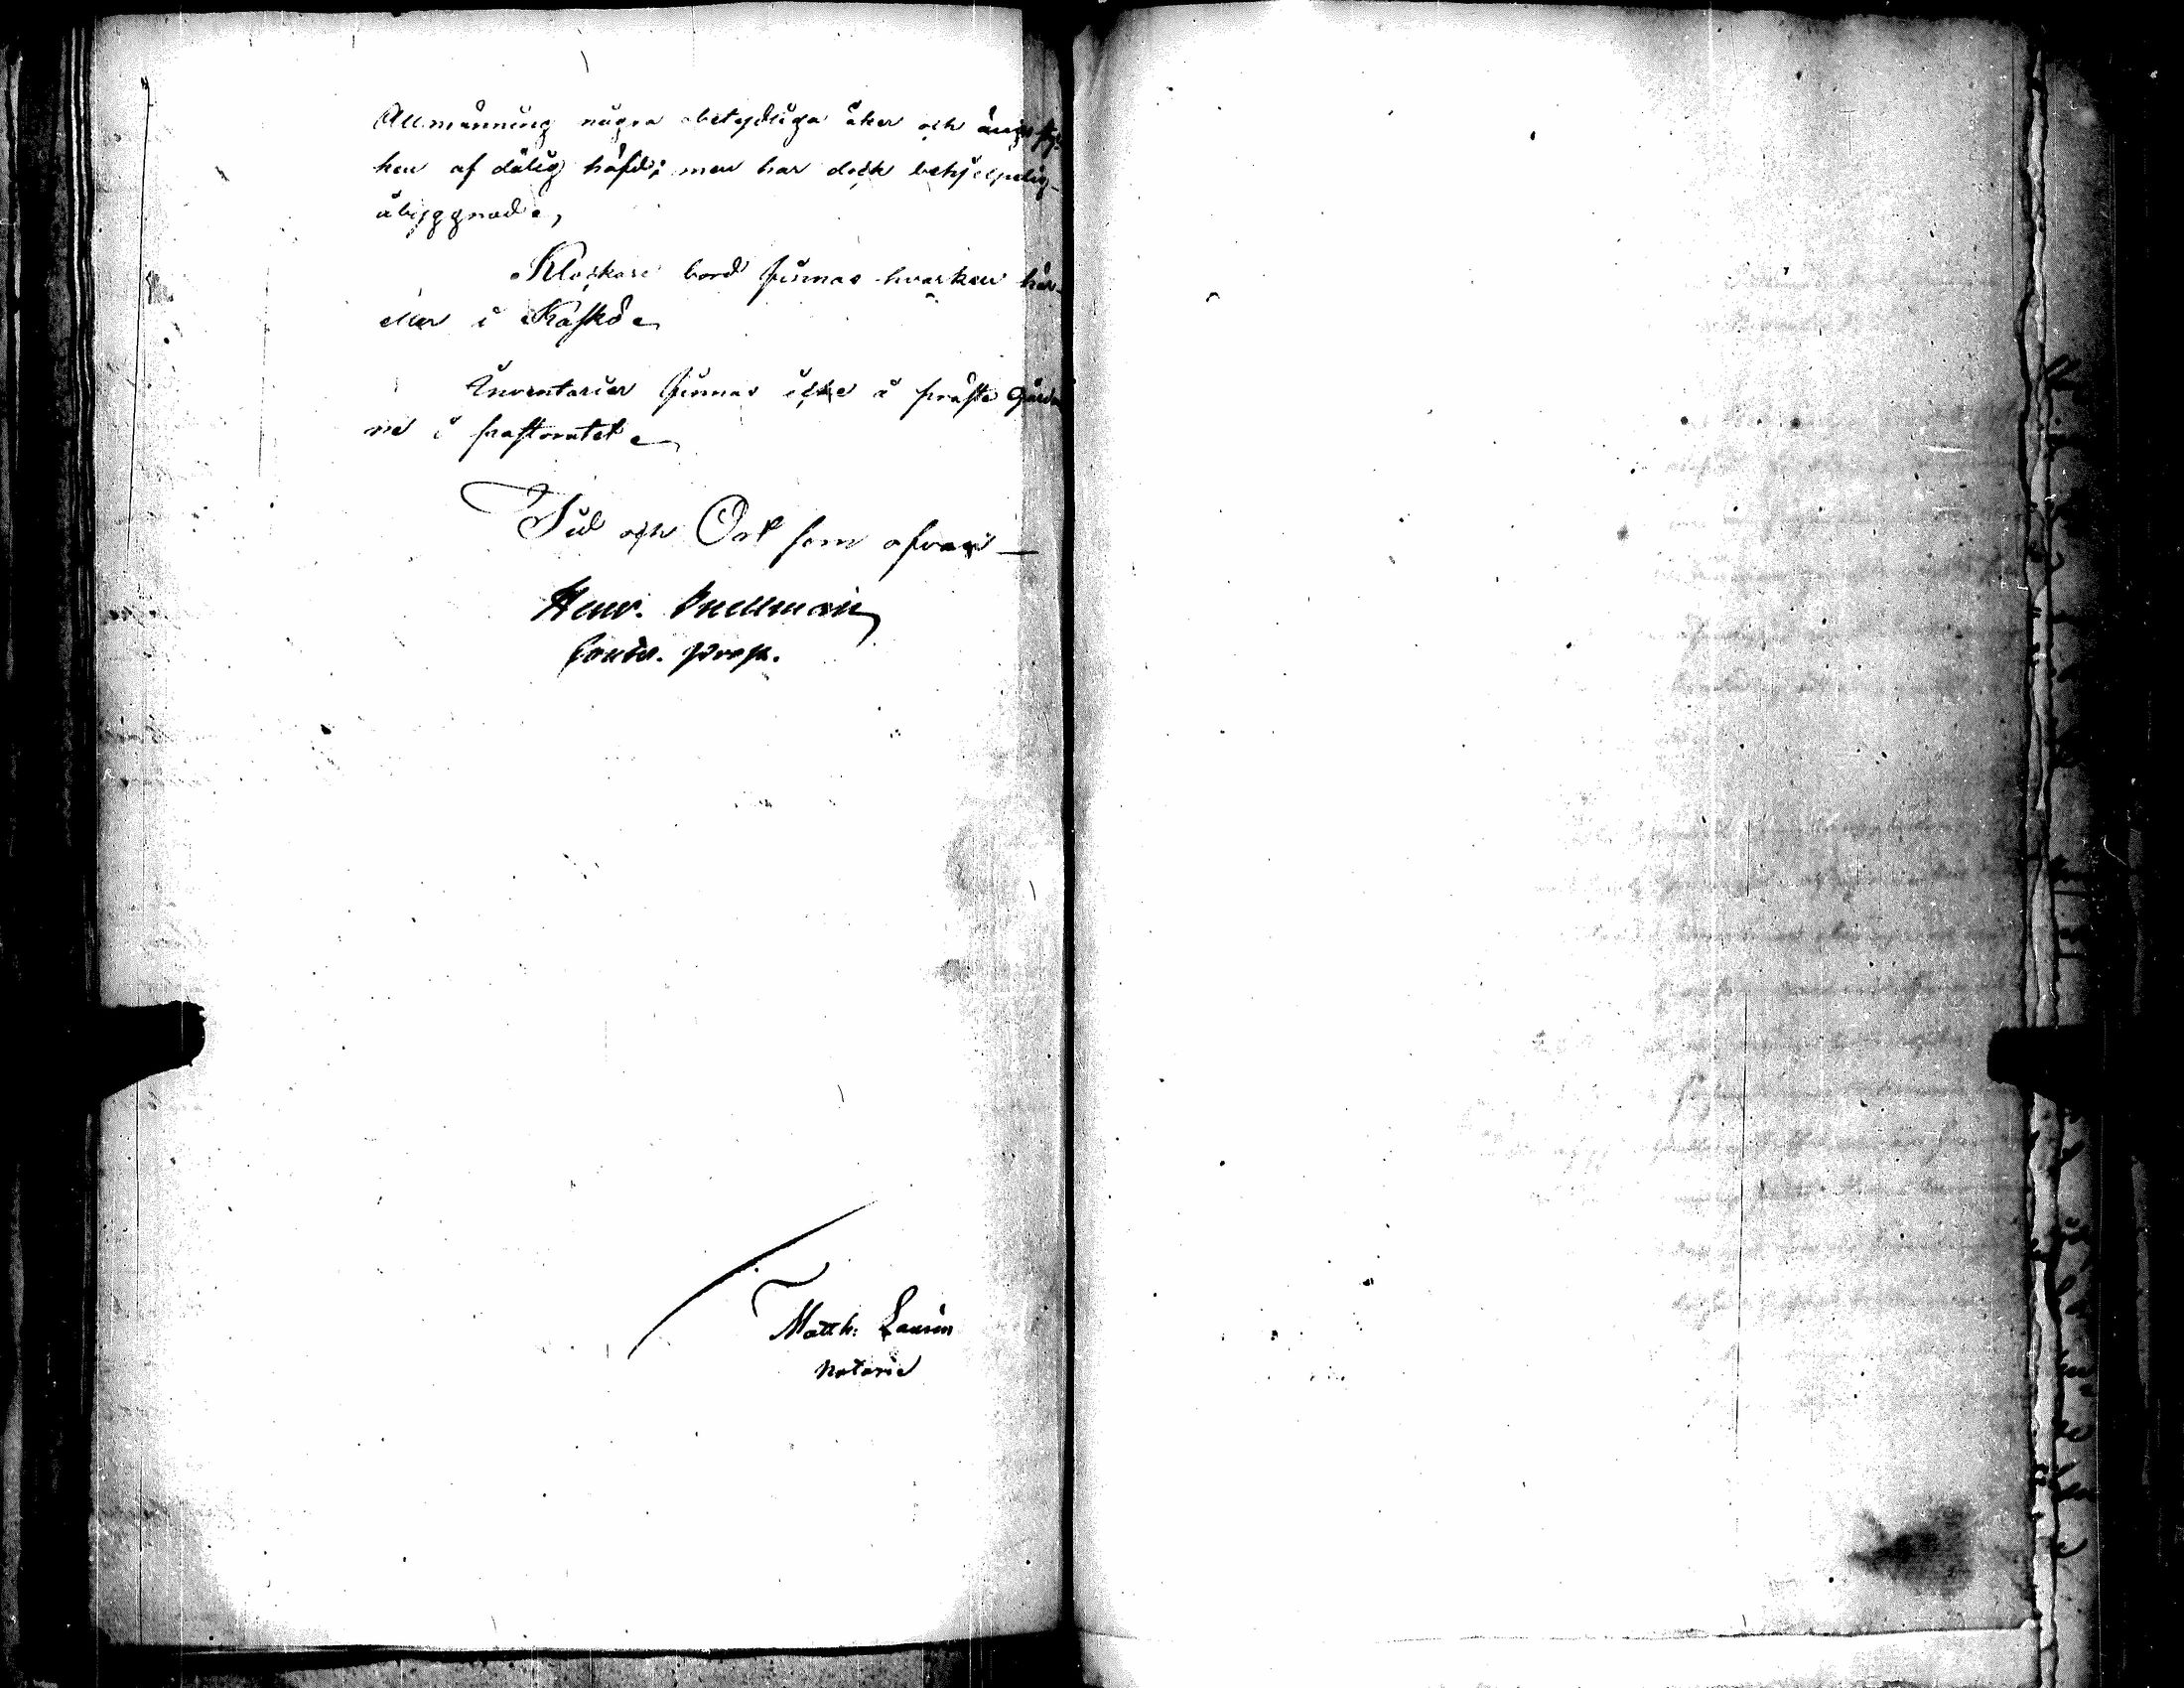 Allmänning några obetydliga åker och ängs sty¬
ken af dålig häfd; men har dock behjelpelig
åbyggnad.
Klockare bord finnas hvarken här
eller i Kaskö.
Inventarier finnas icke å präste Gårdar
ne i pastoratet.
Tid och Ort som ofvan
Henr. Snellman
Contr. prop.
Matth: Laurin
Notarie